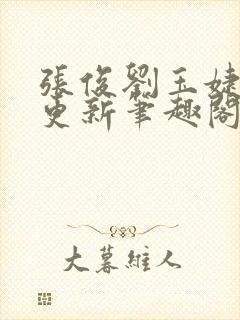 張俊劉玉婕
更新筆趣閣
大暮維人